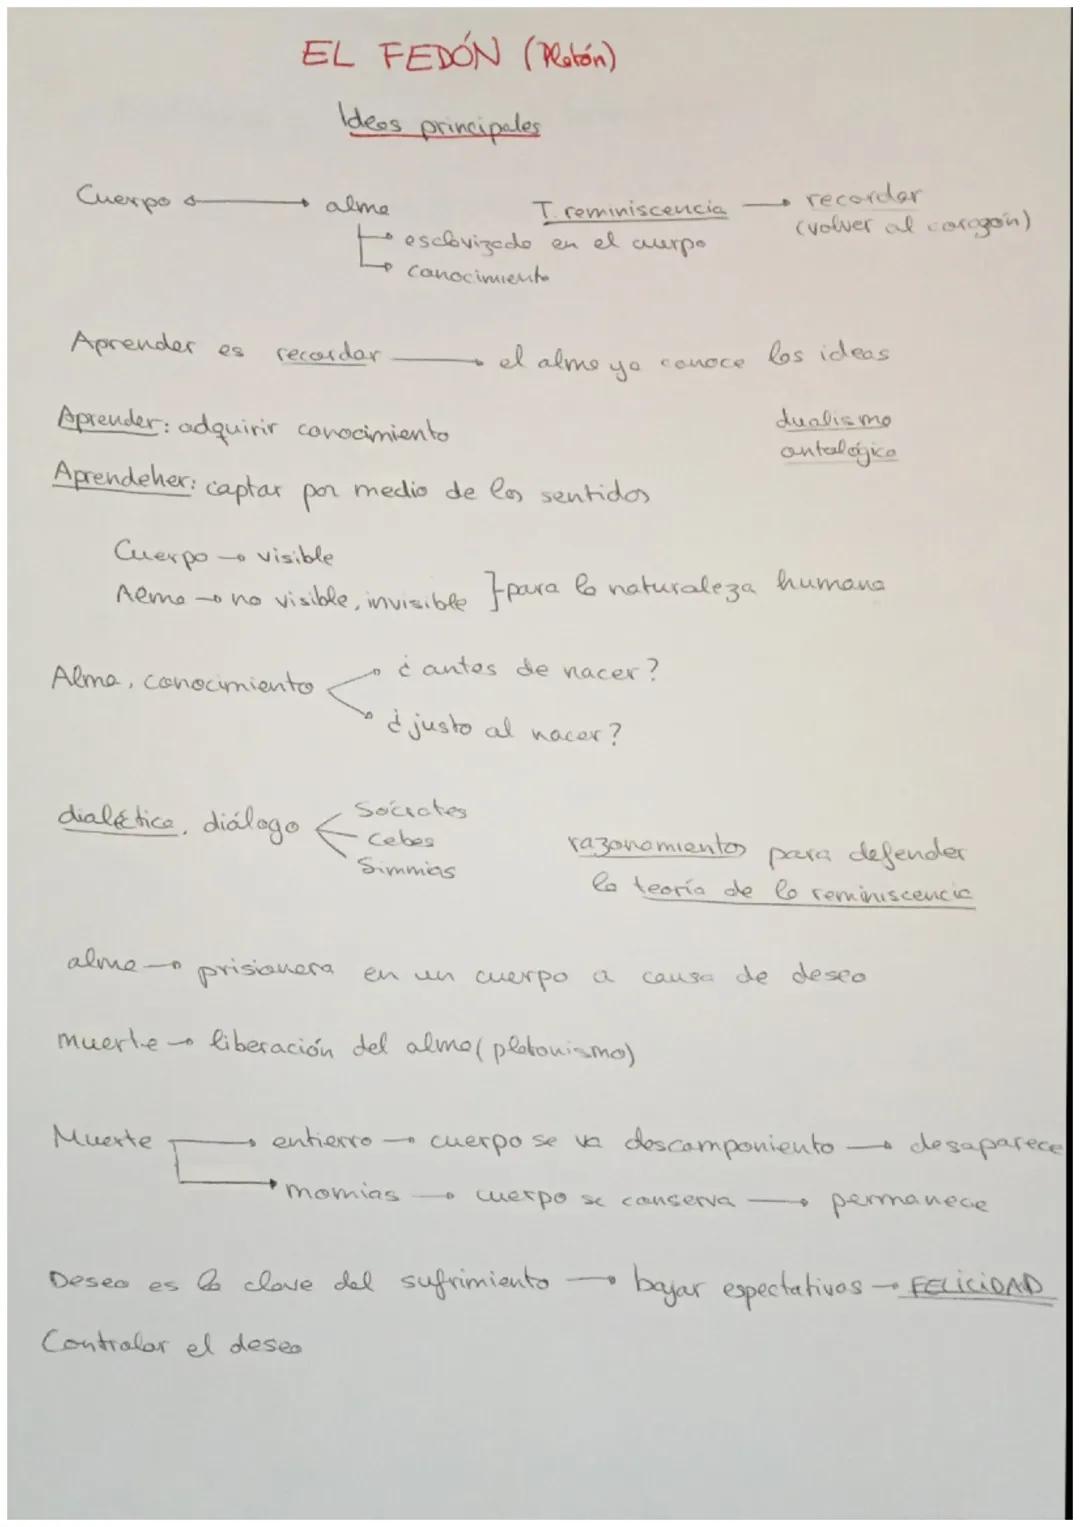 EL FEDÓN (Platón)
Ideas principales
Cuerpo ↔ alma
→ esclavizado en el cuerpo
→ conocimiento
T. reminiscencia → recordar
(volver al corazón)
Aprender es recordar → el alma ya conoce las ideas
Aprender: adquirir conocimiento
dualismo
ontológico
Aprendeher: captar por medio de los sentidos
Cuerpo → visible
Alma → no visible, invisible } para la naturaleza humana
Alma, conocimiento
→ ¿antes de nacer?
→ ¿justo al nacer?
dialéctica, diálogo
Sócrates
Cebes
Simmias
razonamientos para defender
la teoría de la reminiscencia
alma → prisionera en un cuerpo a causa de deseo
muerte → liberación del alma (platonismo)
Muerte → entierro → cuerpo se va descomponiento → desaparece
→ momias → cuerpo se conserva → permanece
Deseo es la clave del sufrimiento → bajar espectativas → FELICIDAD
Controlar el deseo